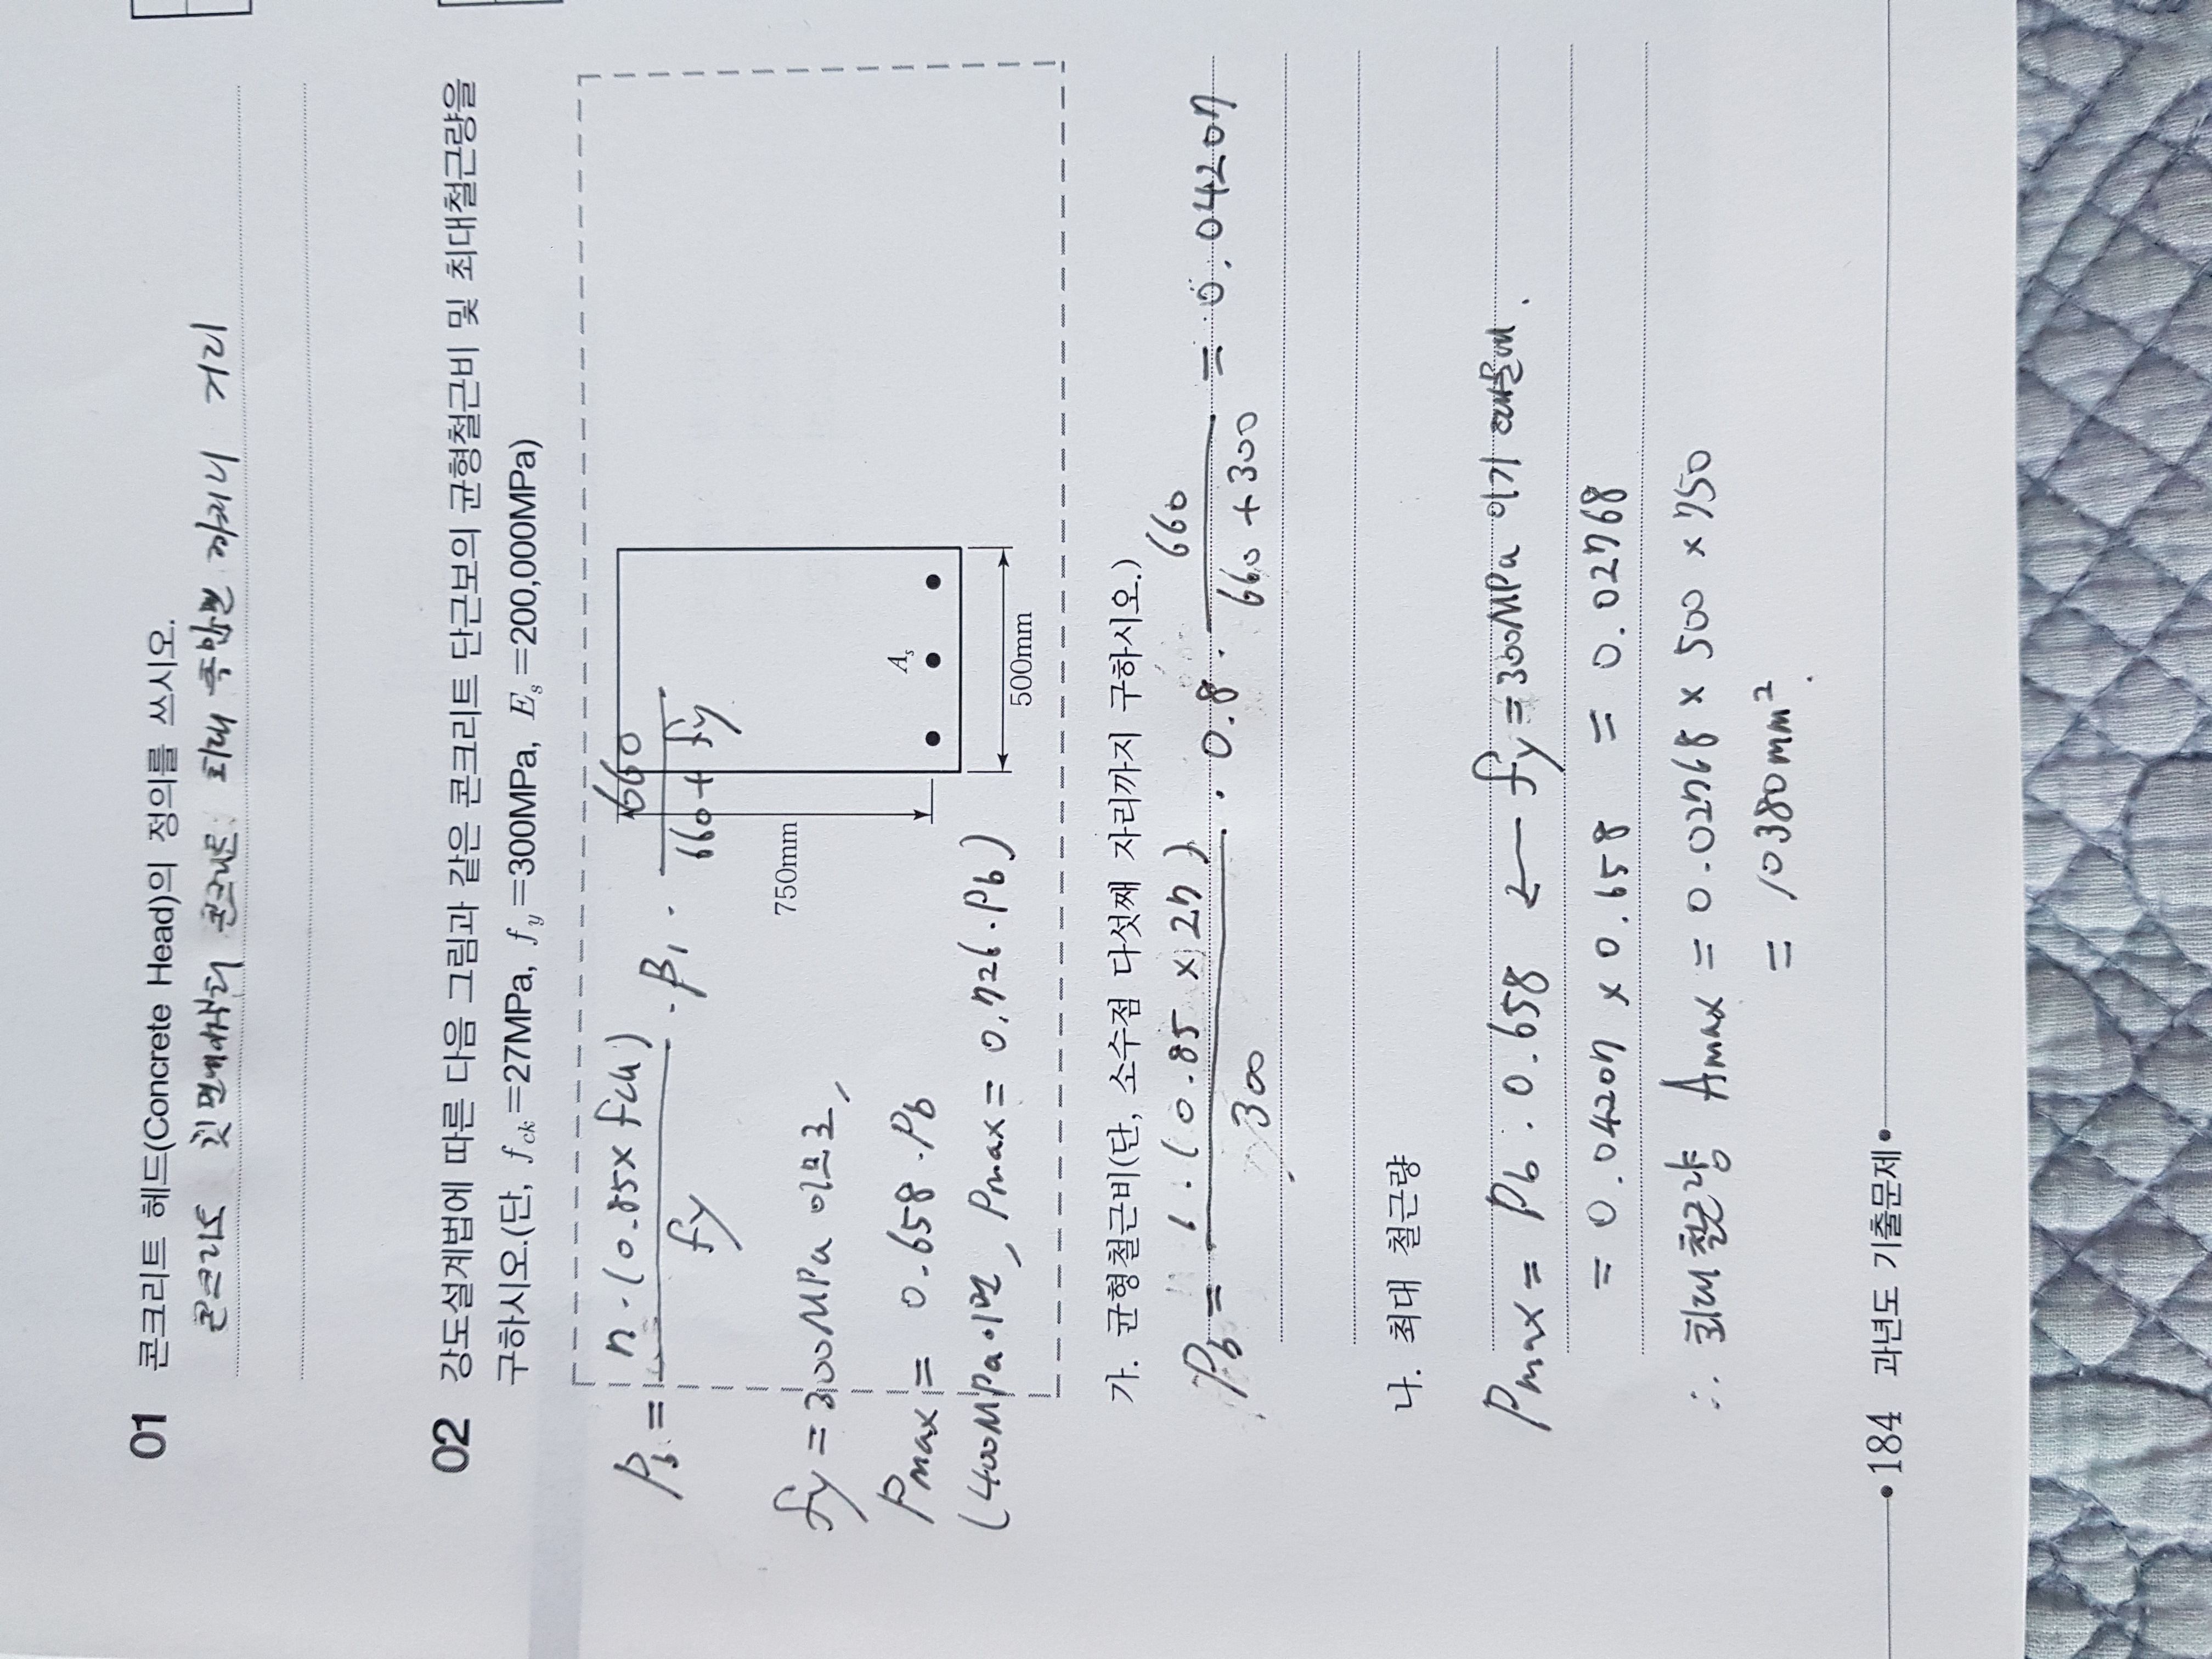 01 콘크리트 헤드(Concrete Head)의 정의를 쓰시오.
콘크리트 윗면에서부터 콘크리트 최대 측압면 까지의 거리
02 강도설계법에 따른 다음 그림과 같은 콘크리트 단근보의 균형철근비 및 최대철근량을
구하시오.(단, f_ck=27MPa, f_y=300MPa, E_s=200,000MPa)
P_b = n·(0.85×fck) / fy · β₁ · 660 / 660+fy
fy = 300MPa 이므로,
Pmax = 0.658·Pb
(400MPa이면, Pmax = 0.726·Pb)
750mm
A_s
500mm
가. 균형철근비(단, 소수점 다섯째 자리까지 구하시오.)
Pb = 1·(0.85×27) / 300 · 0.8 · 660 / 660+300 = 0.04207
나. 최대 철근량
Pmax = Pb · 0.658 ← fy = 300MPa 이기 때문에.
= 0.04207 × 0.658 = 0.02768
∴ 최대철근량 Amax = 0.02768 × 500 × 750
= 10380mm².
184 과년도 기출문제